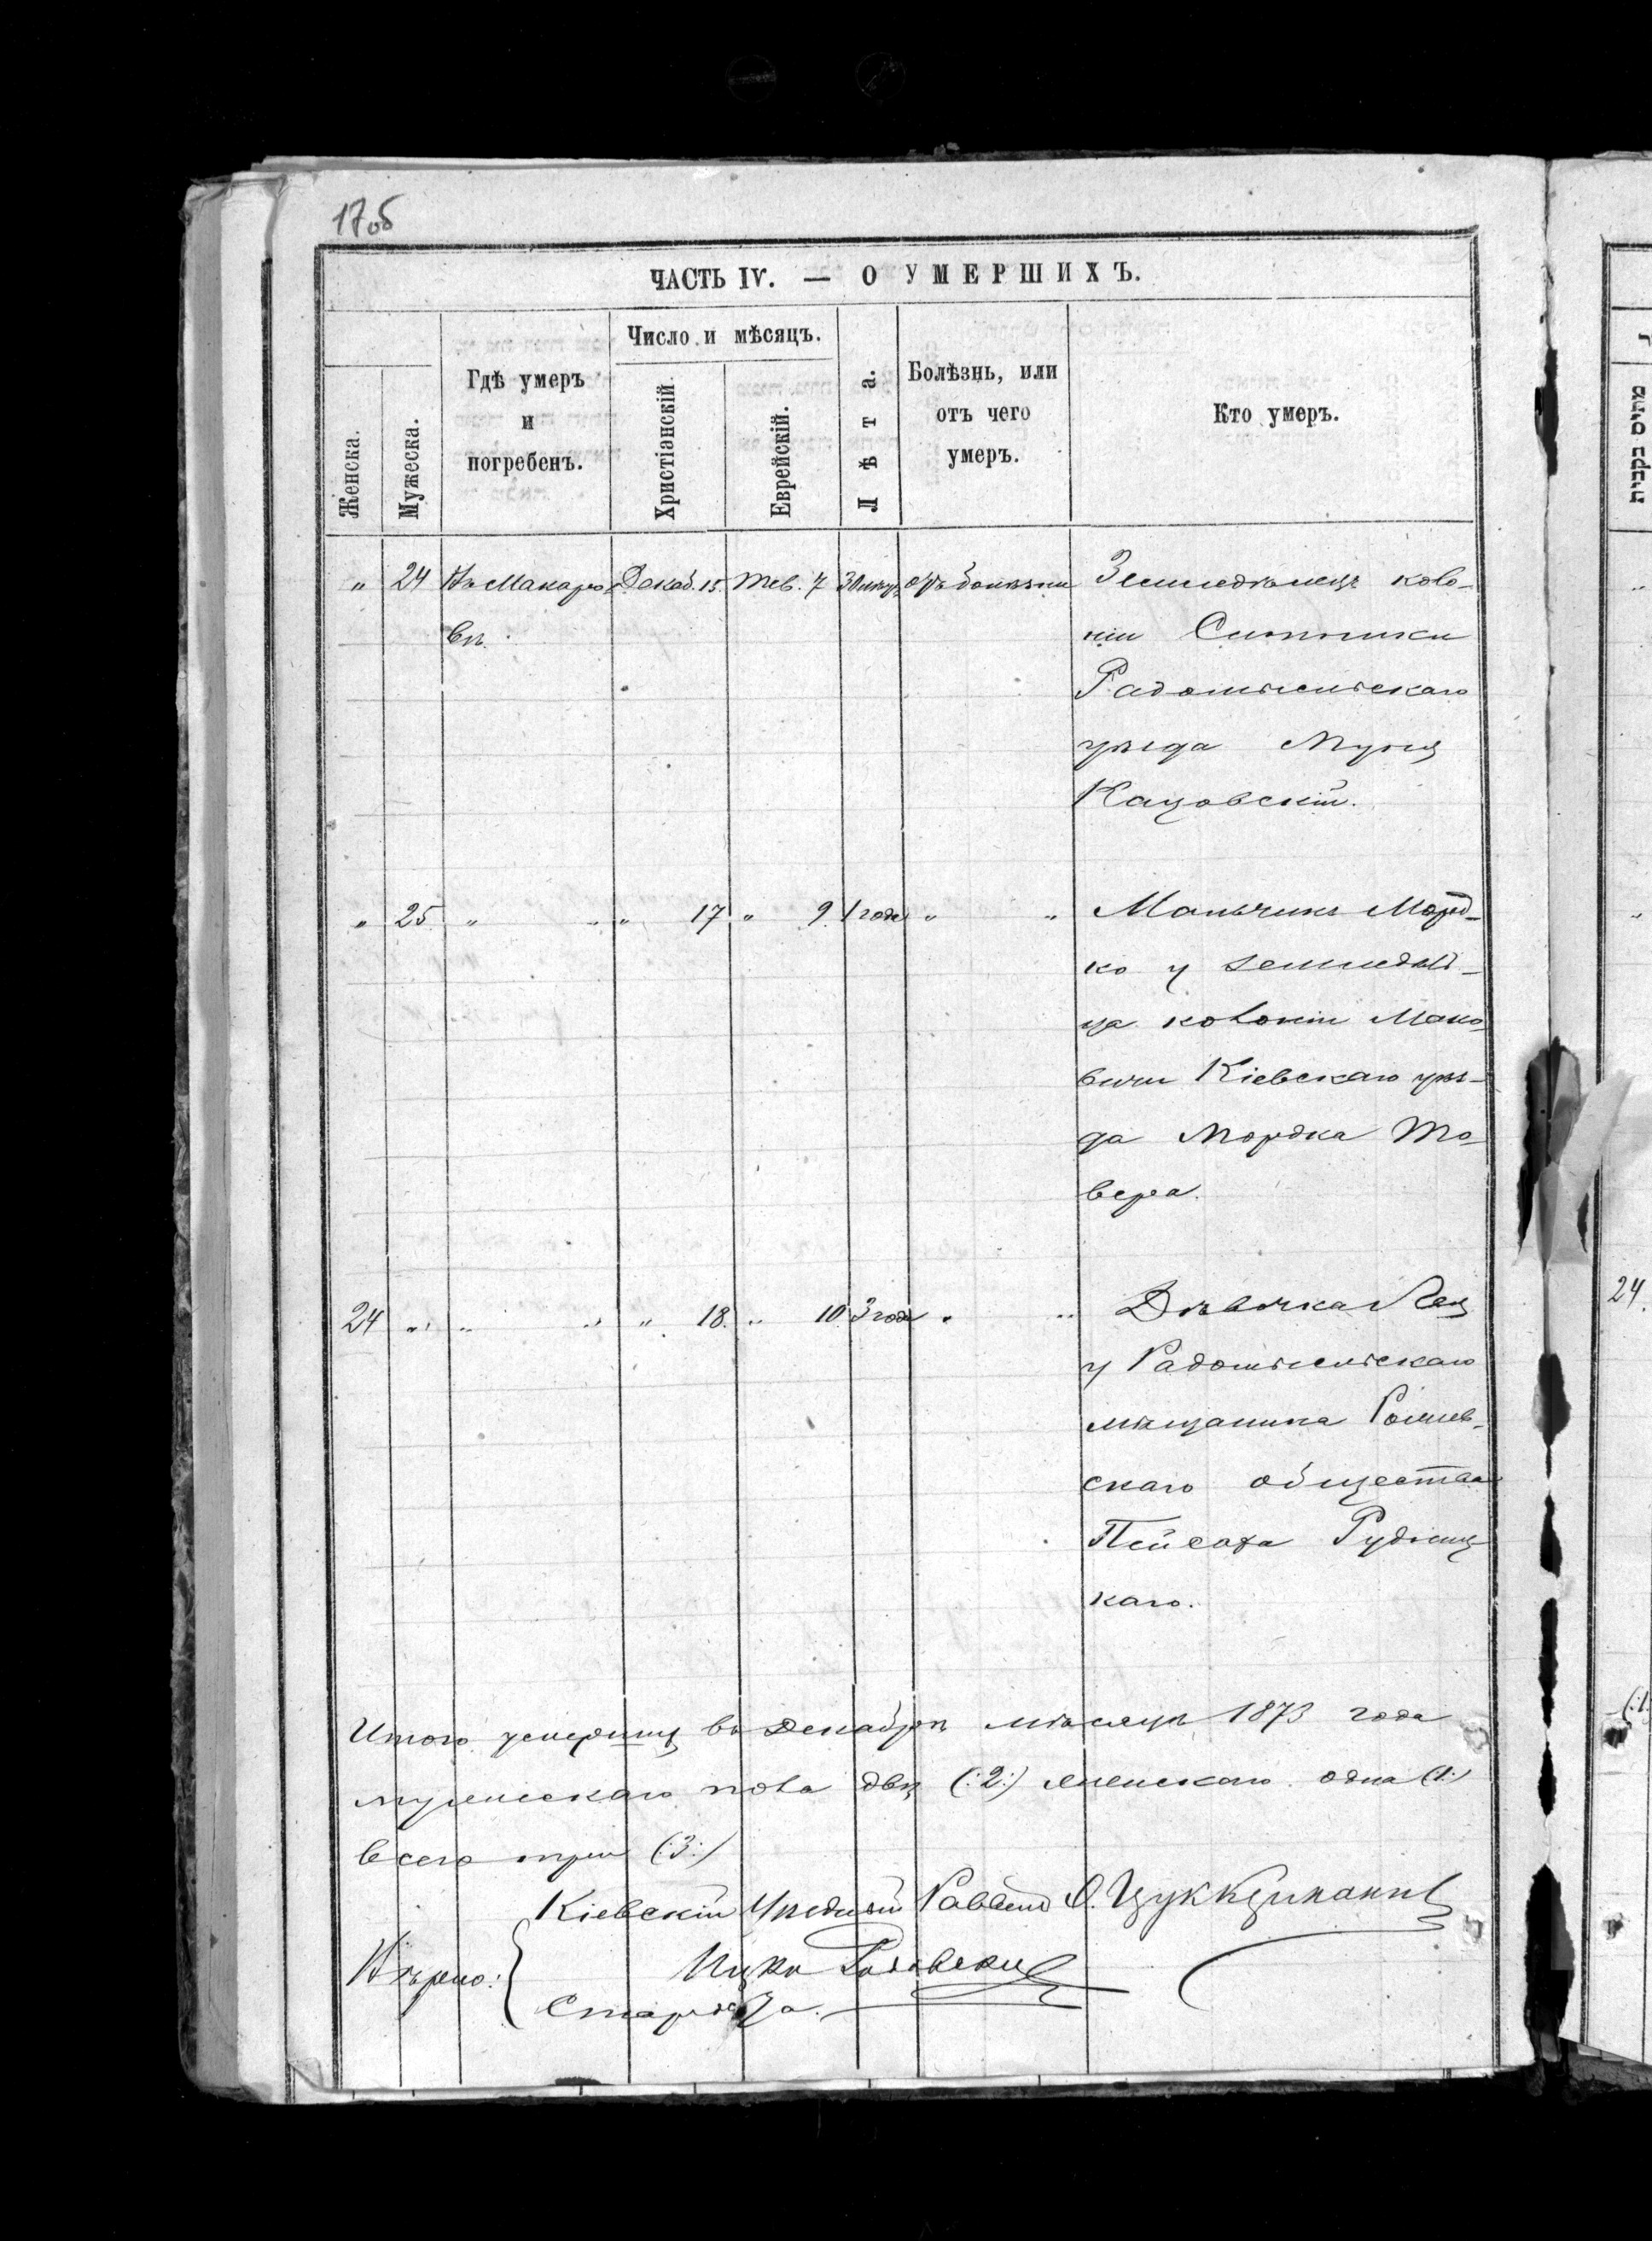 17об
ЧАСТЬ IV. — О УМЕРШИХЪ.
Женска.
Мужеска.
Гдѣ умеръ
и
погребенъ.
Число и мѣсяцъ.
Христіанскій.
Еврейскій.
Лѣта.
Болѣзнь, или
отъ чего
умеръ.
Кто умеръ.
" 24 Въ Макаро- Декаб. 15. Тев. 7 30 отъ болѣзни Земледѣлецъ коло-
вѣ.
ніи Ситники
Радомысльскаго
уѣзда
Кацовскій.
" 25 " " " 17 " 9 1 года " " Мальчикъ Морд-
ко у земледѣл-
ца колоніи Мако-
вичи Кіевскаго уѣз-
да Мордка То-
вера.
24 " " " " 18. " 10 3 года " " Дѣвочка Лея
у Радомысльскаго
мѣщанина
скаго общества
Пейсаха Рудниц
каго.
Итого умершихъ въ Декабрѣ мѣсяцѣ 1873 года
мужескаго пола два (:2:) женскаго одна (:1:)
всего три (:3:)
Кіевскій Уѣздный Раввинъ Цуккерманъ
Вѣрно:
Ицко
Староста.
24.